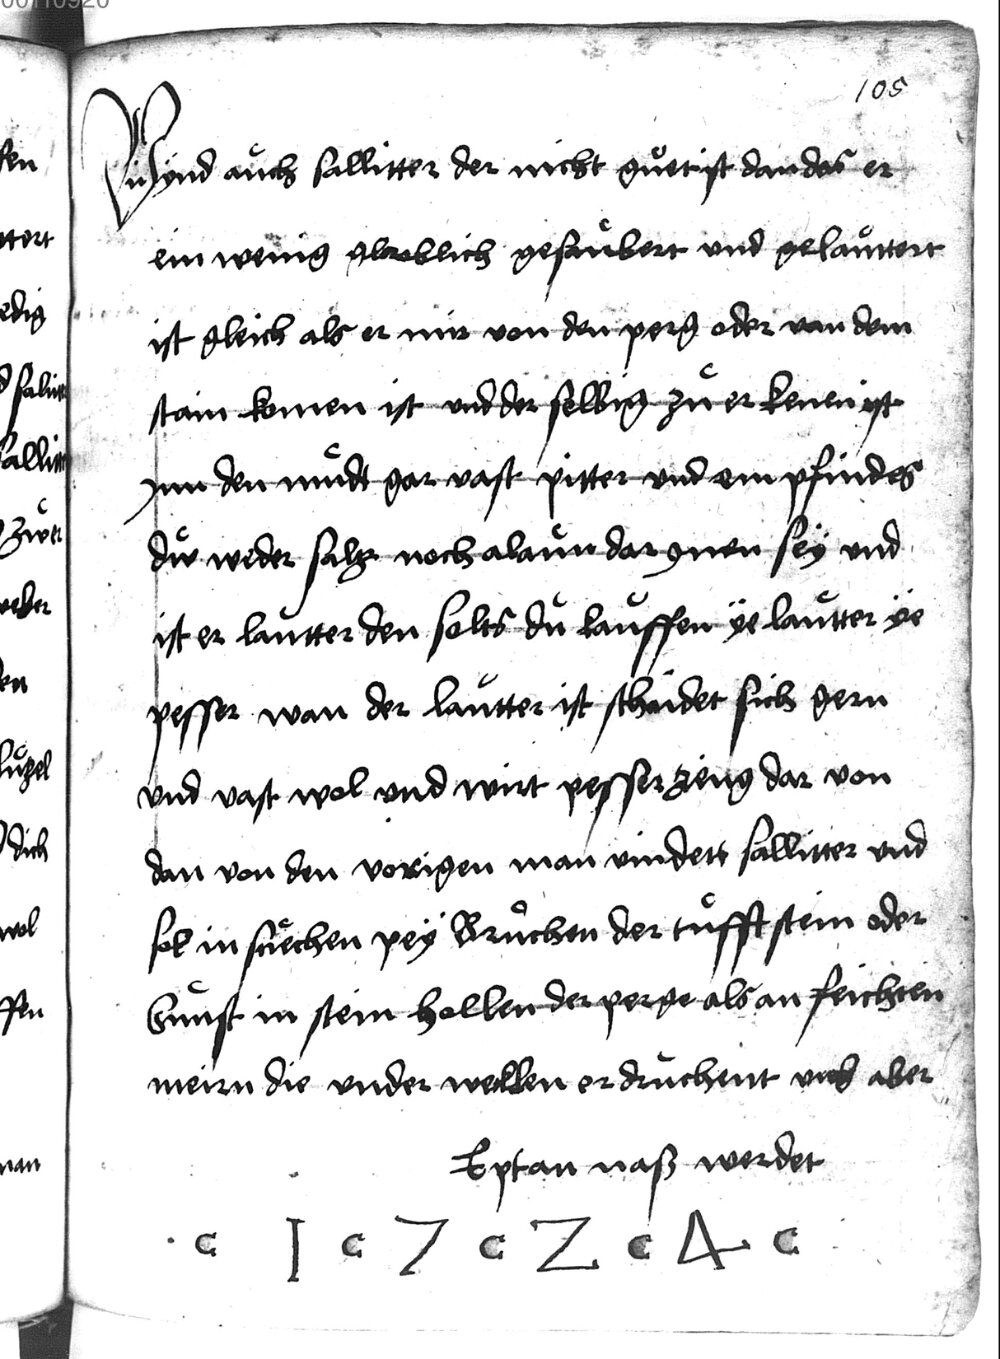 105
Vindt auch sallitter der nicht guet ist dan das er
ein wenig groblich gesaubert und gelauttert
ist gleich als er nur von den perg oder von dem
stain komen ist und der selbig zu er kenen ist
ynn den mudt gar vast pitter und empfindes
du weder saltz noch alaun dar ynen sey und
ist er lautter den solts du kauffen ÿe lautter ÿe
pesser wan der lautter ist schaidet sich gern
und vast wol und wirt pesser zeug dar von
dan von den vorigen man vindett sallitter und
sol in suechen pey Bruchen der tufft stein oder
sunst in stein hollen der perge als an feichten
meirn die under wellen er druchent und aber
Eptan naß werdet
c 1 c 7 c Z c 4 c